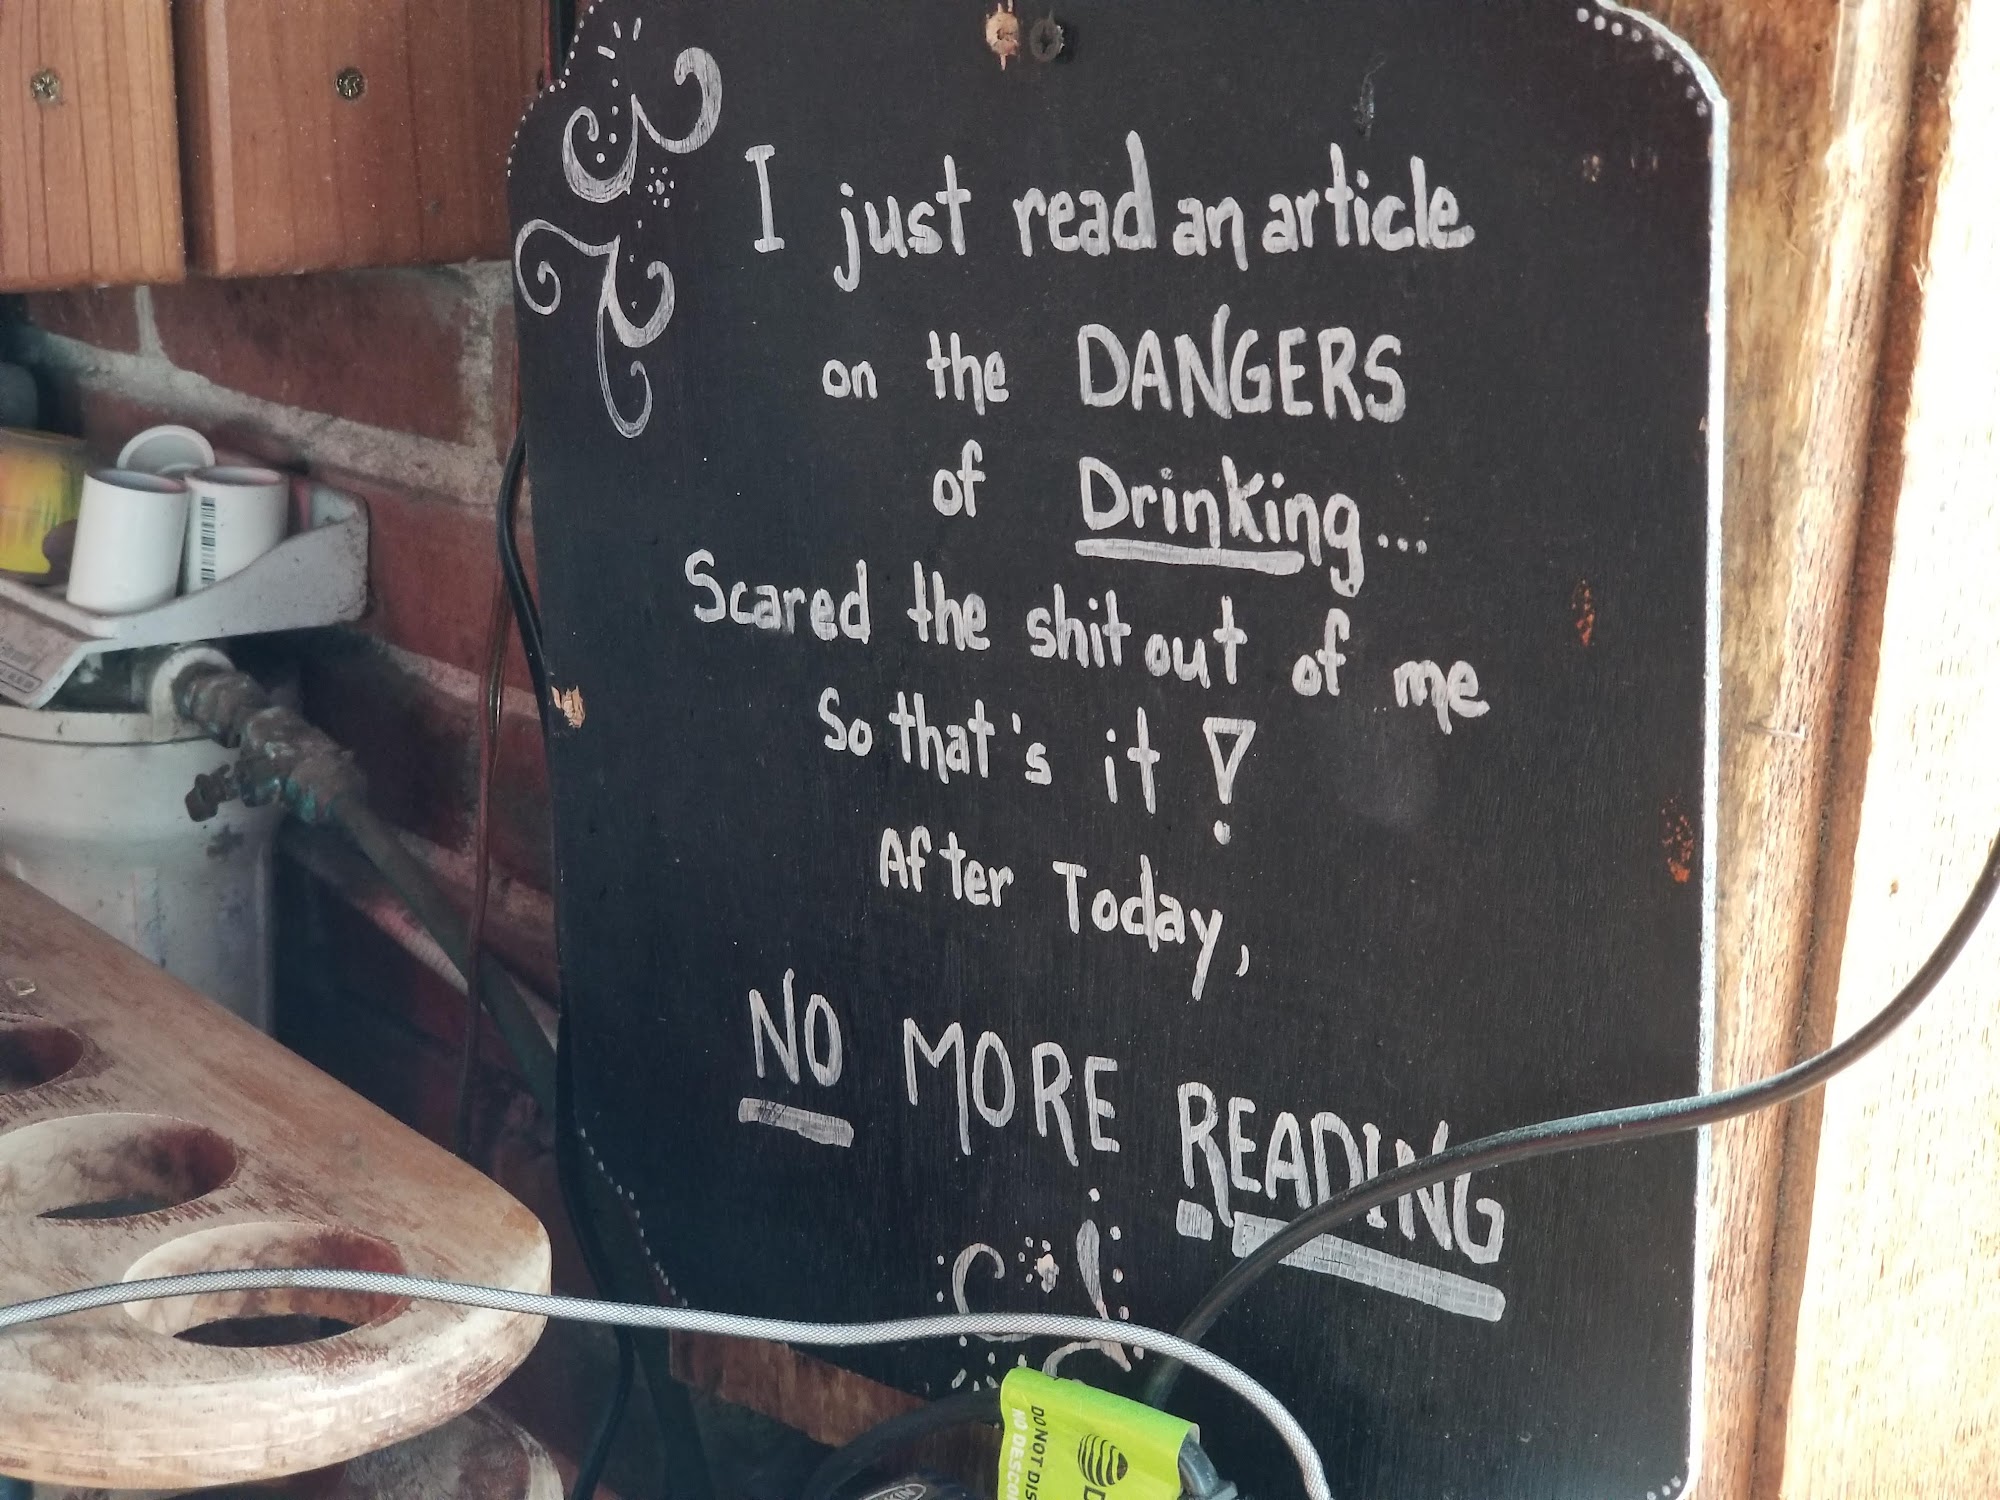 I just read an article
on the DANGERS
of Drinking...
Scared the shit out of me
So that's it!
After Today,
NO MORE READING
DO NOT DIS
NO DESCO